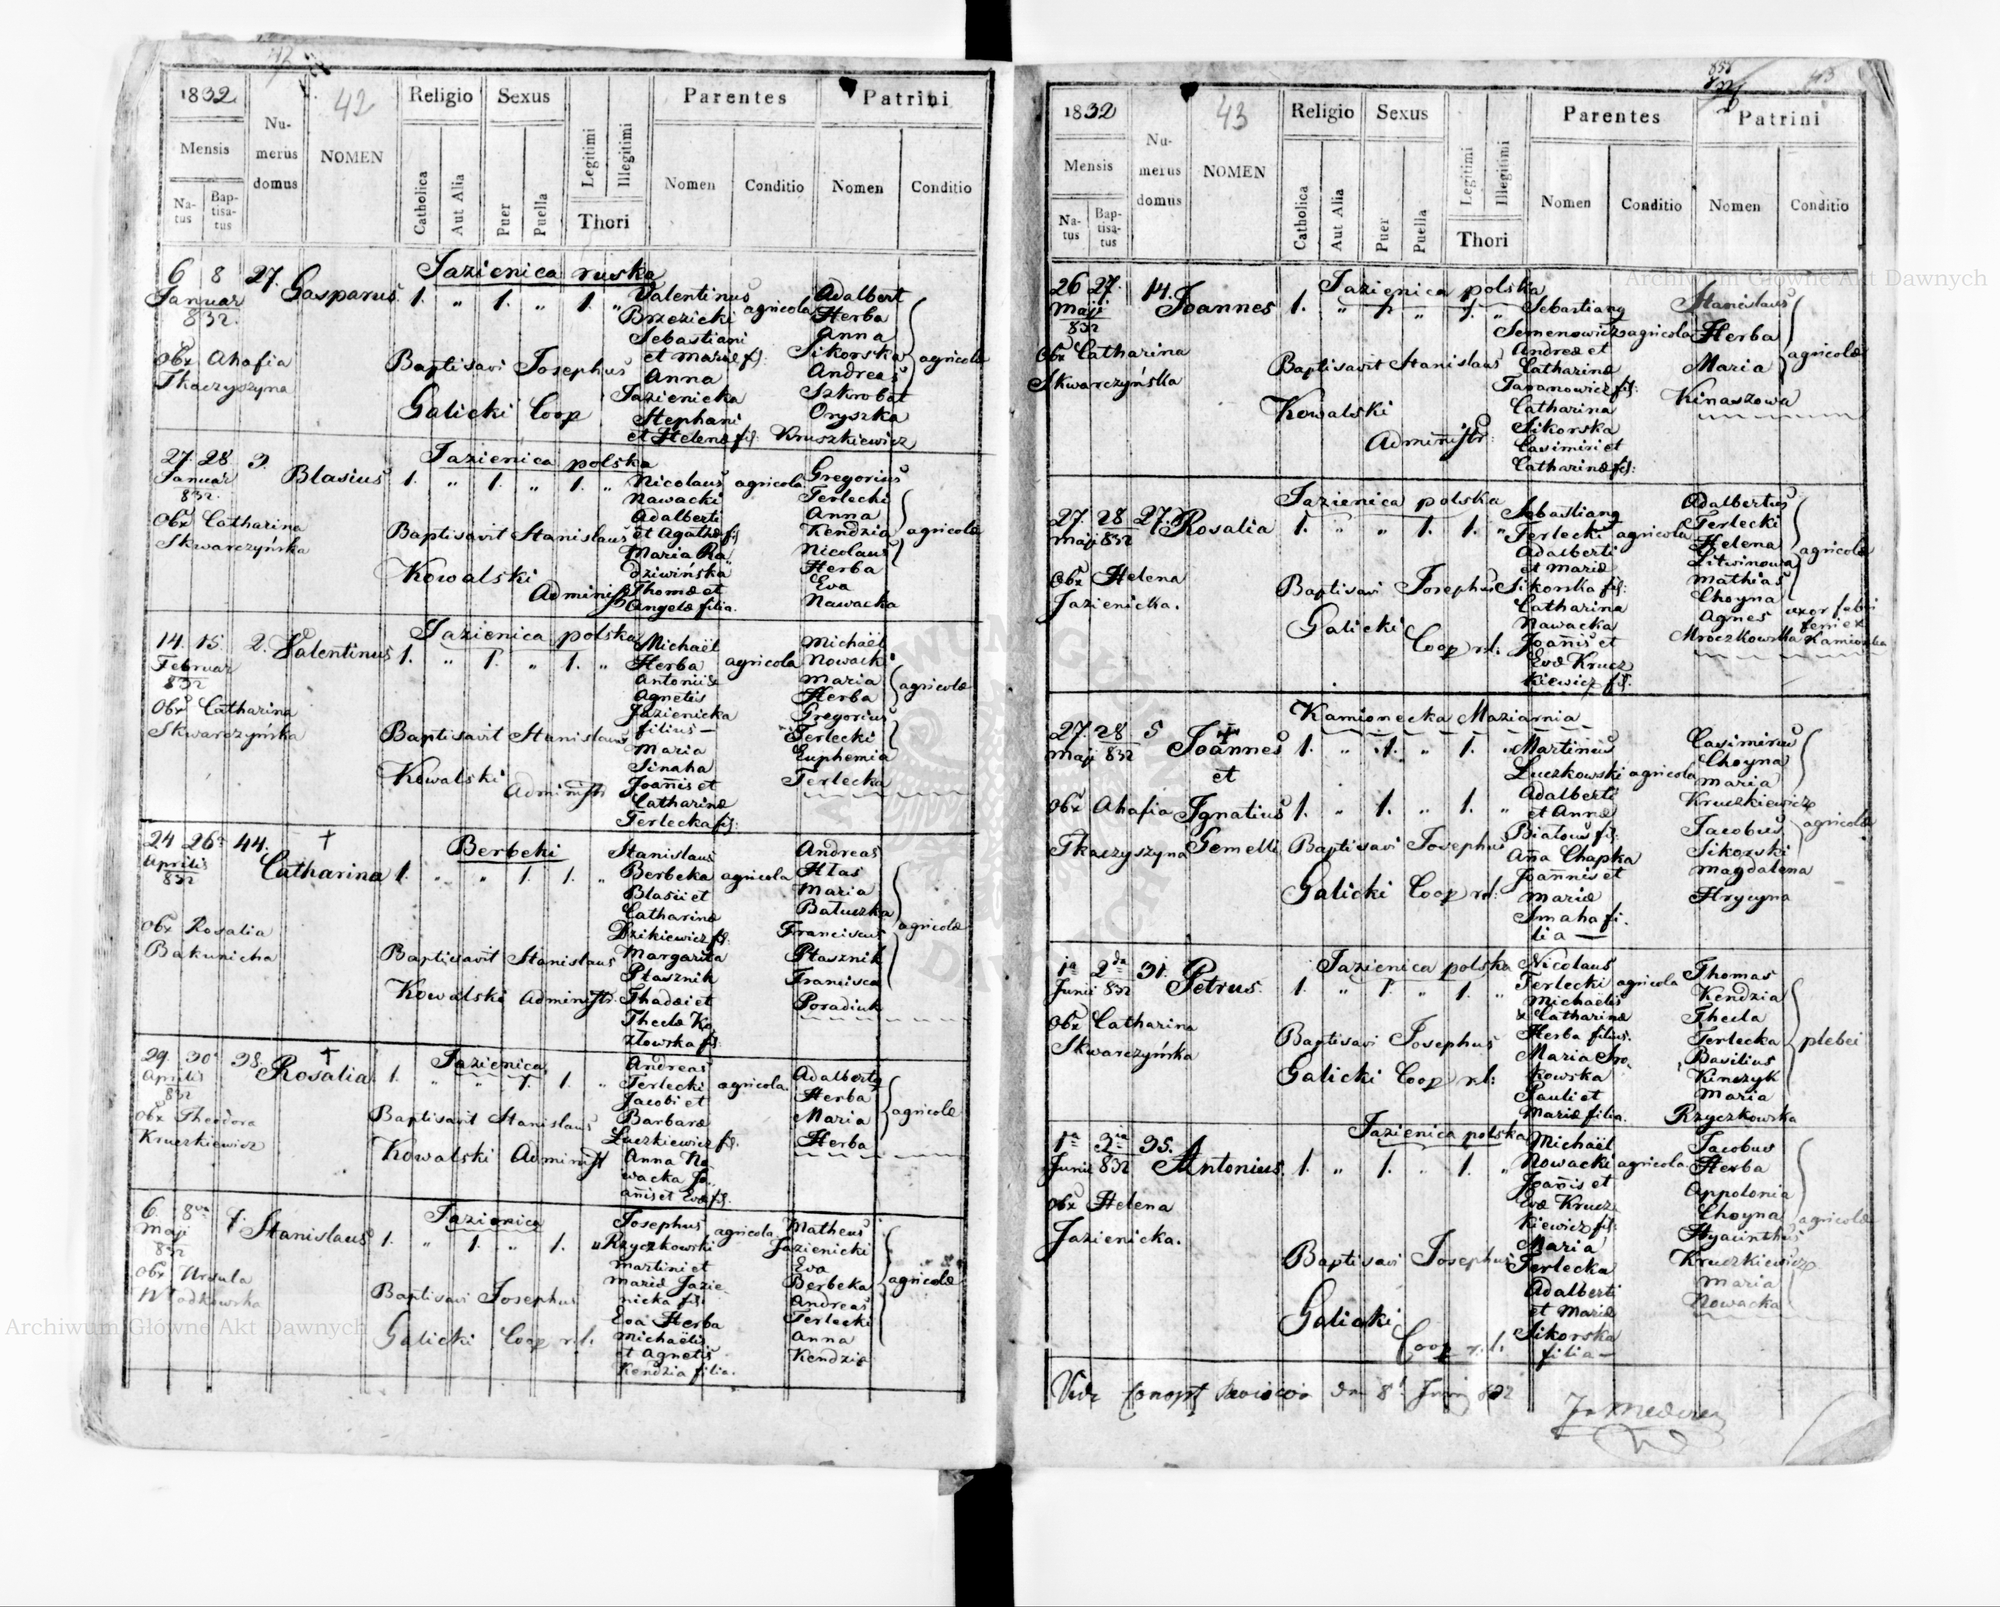 42
1832
Mensis
Na-
tus
Bap-
tisa-
tus
Nu-
merus
domus
NOMEN
Religio
Catholica
Aut Alia
Sexus
Puer
Puella
Legitimi
Illegitimi
Thori
Parentes
Nomen
Conditio
Patrini
Nomen
Conditio
Jazienica ruska
6 8 27. Gasparus 1. " 1. " 1. "
Januar
832.
Valentinus
Brzezicki agricola
Sebastiani
et Mariæ f:
Anna
Jazienicka
Stephani
et Helenæ fil:
Adalbert
Herba
Anna
Sikorska
Andreas
Szkrobat
Oryszka
Kruszkiewicz
agricolæ
Obx Ahafia
Tkaczyszyna
Baptisavi Josephus
Galicki Coop
Jazienica polska
27. 28 3. Blasius 1. " 1. " 1. "
Januar
832.
Nicolaus agricola
Nawacki
Adalberti
et Agathæ f:
Maria Ra
dziwińska
Thomæ et
Angelæ filia.
Gregorius
Terlecki
Anna
Kendzia
Nicolaus
Herba
Eva
Nawacka
agricolæ
Obx Catharina
Skwarczyńska
Baptisavit Stanislaus
Kowalski
Administr
Jazienica polska
14. 15. 2. Valentinus 1. " 1. " 1. "
Februar
832
Michaël
Herba agricola
Antonii &
Agnetis
Jazienicka
filius —
Maria
Sinaha
Joannis et
Catharinæ
Terlecka fil:
Michaël
Nowacki
Maria
Herba
Gregorius
Terlecki
Euphemia
Terlecka
agricolæ
Obx Catharina
Skwarczyńska
Baptisavit Stanislaus
Kowalski
Administr
Berbeki
24 26 44. Catharina 1. " " 1. 1. "
Aprilis
832
Stanislaus
Berbeka agricola
Blasii et
Catharinæ
Dzikiewicz f:
Margarita
Ptasznik
Thadæi et
Theclæ Ko
złowska f:
Andreas
Hlas
Maria
Batuszka
Franciscus
Ptasznik
Francisca
Poradiuk
agricolæ
Obx Rosalia
Bakunicha
Baptisavit Stanislaus
Kowalski Administr.
Jazienica
29. 30 38. Rosalia 1. " " 1. 1. "
Aprilis
832
Andreas
Terlecki agricola
Jacobi et
Barbaræ
Luczkiewicz f:
Anna No
wacka Jo
annis et Evæ f:
Adalbertg
Herba
Maria
Herba
agricolæ
Obx Theodora
Kruczkiewicz
Baptisavit Stanislaus
Kowalski Administr
Jazienica
6. 8va 7. Stanislaus 1. " 1. " 1. "
Maji
832
Josephus agricola
Rzyczkowski
Martini et
Mariæ Jazie
nicka fil:
Eva Herba
Michaëlis
et Agnetis
Kendzia filia.
Matheus
Jazienicki
Eva
Berbeka
Andreas
Terlecki
Anna
Kendzia
agricolæ
Obx Ursula
Władkowska
Baptisavi Josephus
Galicki Coop r.l.
43
1832
Mensis
Na-
tus
Bap-
tisa-
tus
Nu-
merus
domus
NOMEN
Religio
Catholica
Aut Alia
Sexus
Puer
Puella
Legitimi
Illegitimi
Thori
Parentes
Nomen
Conditio
Patrini
Nomen
Conditio
Jazienica polska
26 27. 14. Joannes 1. " 1. " 1. "
Maji
832
Sebastiang
Semenowicz agricola
Andreæ et
Catharinæ
Taranowicz fil:
Catharina
Sikorska
Casimiri et
Catharinæ fil:
Stanislaus
Herba
Maria
Kinaszowa
agricolæ
Obx Catharina
Skwarczyńska
Baptisavit Stanislaus
Kowalski
Administr:
Jazienica polska
27. 28 27. Rosalia 1. " " 1. 1. "
Maji 832
Sebastiang
Terlecki agricola
Adalberti
et Mariæ
Sikorska fil:
Catharina
Nawacka
Joannis et
Evæ Krucz
kiewicz fil:
Adalbertus
Terlecki
Helena
Litwinowa
Mathias
Choyna
Agnes
Mroczkowska
agricolæ
Obx Helena
Jazienicka.
Baptisavi Josephus
Galicki
Coop rl:
Kamionecka Maziarnia
27. 28 5 Joannes 1. " 1. " 1. "
Maji 832
et
Ignatius 1. " 1. " 1. "
Gemelli
Martinus
Luczkowski agricola
Adalberti
et Annæ
Białous fil:
Anna Chapka
Joannis et
Mariæ
Smaha fi
lia —
Casimirus
Choyna
Maria
Kruczkiewicz
Jacobus
Sikorski
Magdalena
Hrycyna
agricolæ
Obx Ahafia
Tkaczyszyna
Baptisavi Josephus
Galicki Coop rl:
Jazienica polska
1a 2da 31. Petrus. 1. " 1. " 1. "
Junii 832
Nicolaus
Terlecki agricola
Michaëlis
& Catharinæ
Herba filius.
Maria Sro
kowska
Pauli et
Mariæ filia.
Thomas
Kendzia
Thecla
Terlecka
Basilius
Kinczyk
Maria
Rzyczkowska
plebei
Obx Catharina
Skwarczyńska
Baptisavi Josephus
Galicki Coop rl:
Jazienica polska
1a 3ia 35. Antonius 1. " 1. " 1. "
Junii 832
Michaël
Nowacki agricola
Joannis et
Evæ Krucz
kiewicz fil:
Maria
Terlecka
Adalberti
et Mariæ
Sikorska
filia —
Jacobus
Herba
Appolonia
Choyna
Hyacinthus
Kruczkiewicz
Maria
Nowacka
agricolæ
Obx Helena
Jazienicka.
Baptisavi Josephus
Galicki
Coop r.l.
Archiwum Główne Akt Dawnych
Archiwum Główne Akt Dawnych